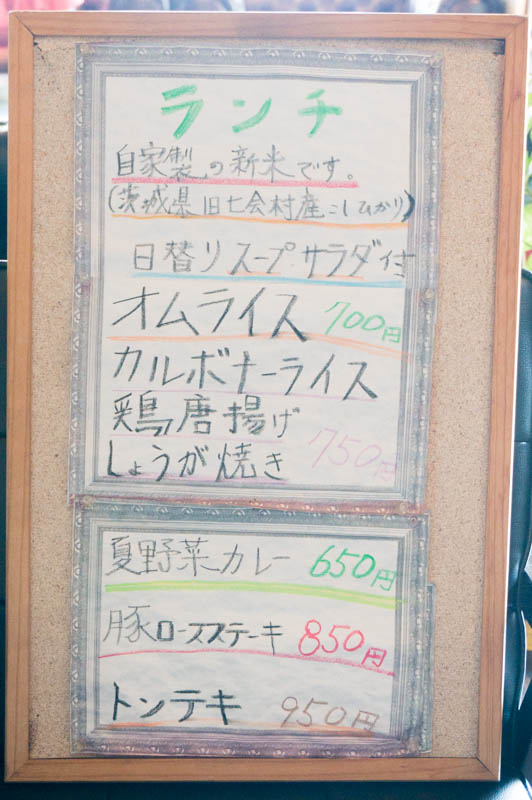 ランチ
自家製の新米です。
(茨城県旧七会村産こしひかり)
日替りスープ.サラダ付
オムライス 700円
カルボナーライス
鶏唐揚げ
しょうが焼き 750円
夏野菜カレー 650円
豚ロースステーキ 850円
トンテキ 950円